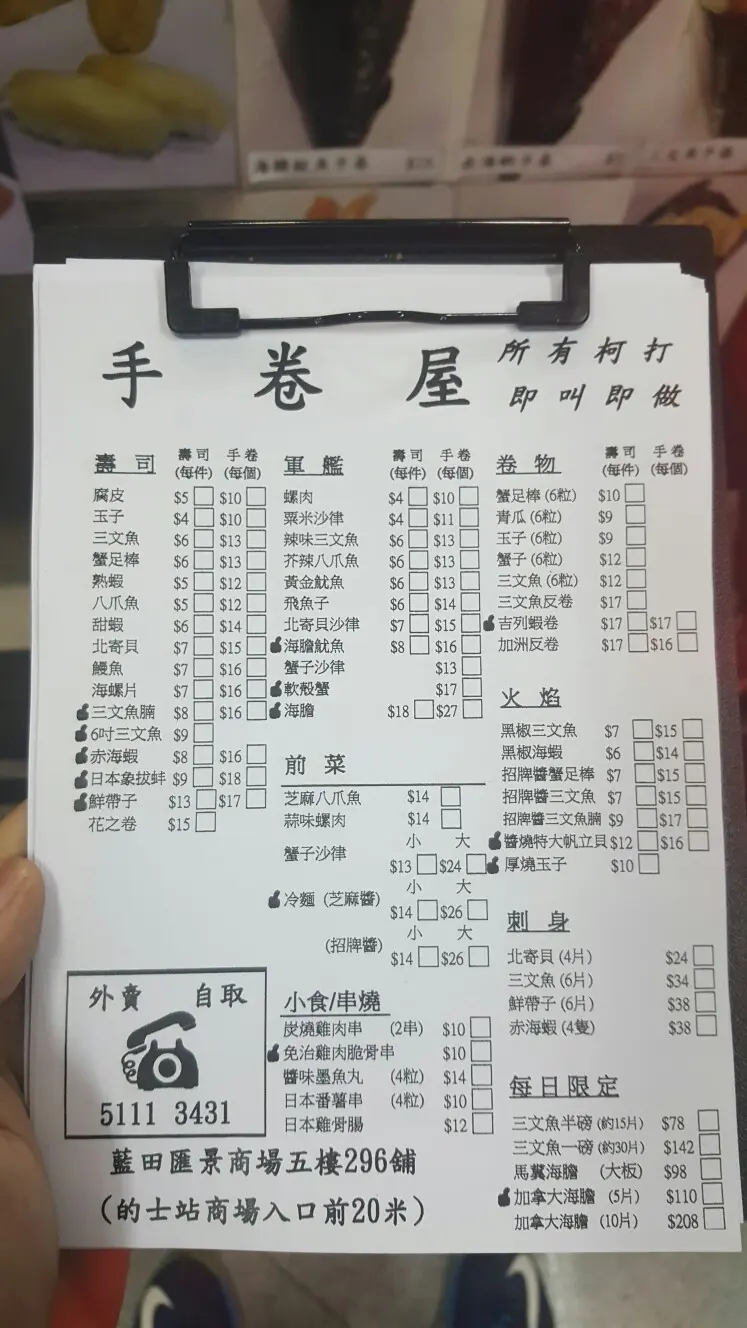 手卷屋
所有柯打
即叫即做
壽司 壽司(每件) 手卷(每個)
腐皮 $5 $10
玉子 $4 $10
三文魚 $6 $13
蟹足棒 $6 $13
熟蝦 $5 $12
八爪魚 $5 $12
甜蝦 $6 $14
北寄貝 $7 $15
鰻魚 $7 $16
海螺片 $7 $16
三文魚腩 $8 $16
6吋三文魚 $9
赤海蝦 $8 $16
日本象拔蚌 $9 $18
鮮帶子 $13 $17
花之卷 $15
軍艦 壽司(每件) 手卷(每個)
螺肉 $4 $10
粟米沙律 $4 $11
辣味三文魚 $6 $13
芥辣八爪魚 $6 $13
黃金魷魚 $6 $13
飛魚子 $6 $14
北寄貝沙律 $7 $15
海膽魷魚 $8 $16
蟹子沙律 $13
軟殼蟹 $17
海膽 $18 $27
前菜
芝麻八爪魚 $14
蒜味螺肉 $14
小 大
蟹子沙律 $13 $24
小 大
冷麵 (芝麻醬) $14 $26
小 大
(招牌醬) $14 $26
小食/串燒
炭燒雞肉串 (2串) $10
免治雞肉脆骨串 $10
醬味墨魚丸 (4粒) $14
日本番薯串 (4粒) $10
日本雞骨腸 $12
卷物 壽司(每件) 手卷(每個)
蟹足棒 (6粒) $10
青瓜 (6粒) $9
玉子 (6粒) $9
蟹子 (6粒) $12
三文魚 (6粒) $12
三文魚反卷 $17
吉列蝦卷 $17 $17
加洲反卷 $17 $16
火焰
黑椒三文魚 $7 $15
黑椒海蝦 $6 $14
招牌醬蟹足棒 $7 $15
招牌醬三文魚 $7 $15
招牌醬三文魚腩 $9 $17
醬燒特大帆立貝 $12 $16
厚燒玉子 $10
刺身
北寄貝 (4片) $24
三文魚 (6片) $34
鮮帶子 (6片) $38
赤海蝦 (4隻) $38
每日限定
三文魚半磅 (約15片) $78
三文魚一磅 (約30片) $142
馬糞海膽 (大板) $98
加拿大海膽 (5片) $110
加拿大海膽 (10片) $208
外賣 自取
5111 3431
藍田匯景商場五樓296舖
(的士站商場入口前20米)